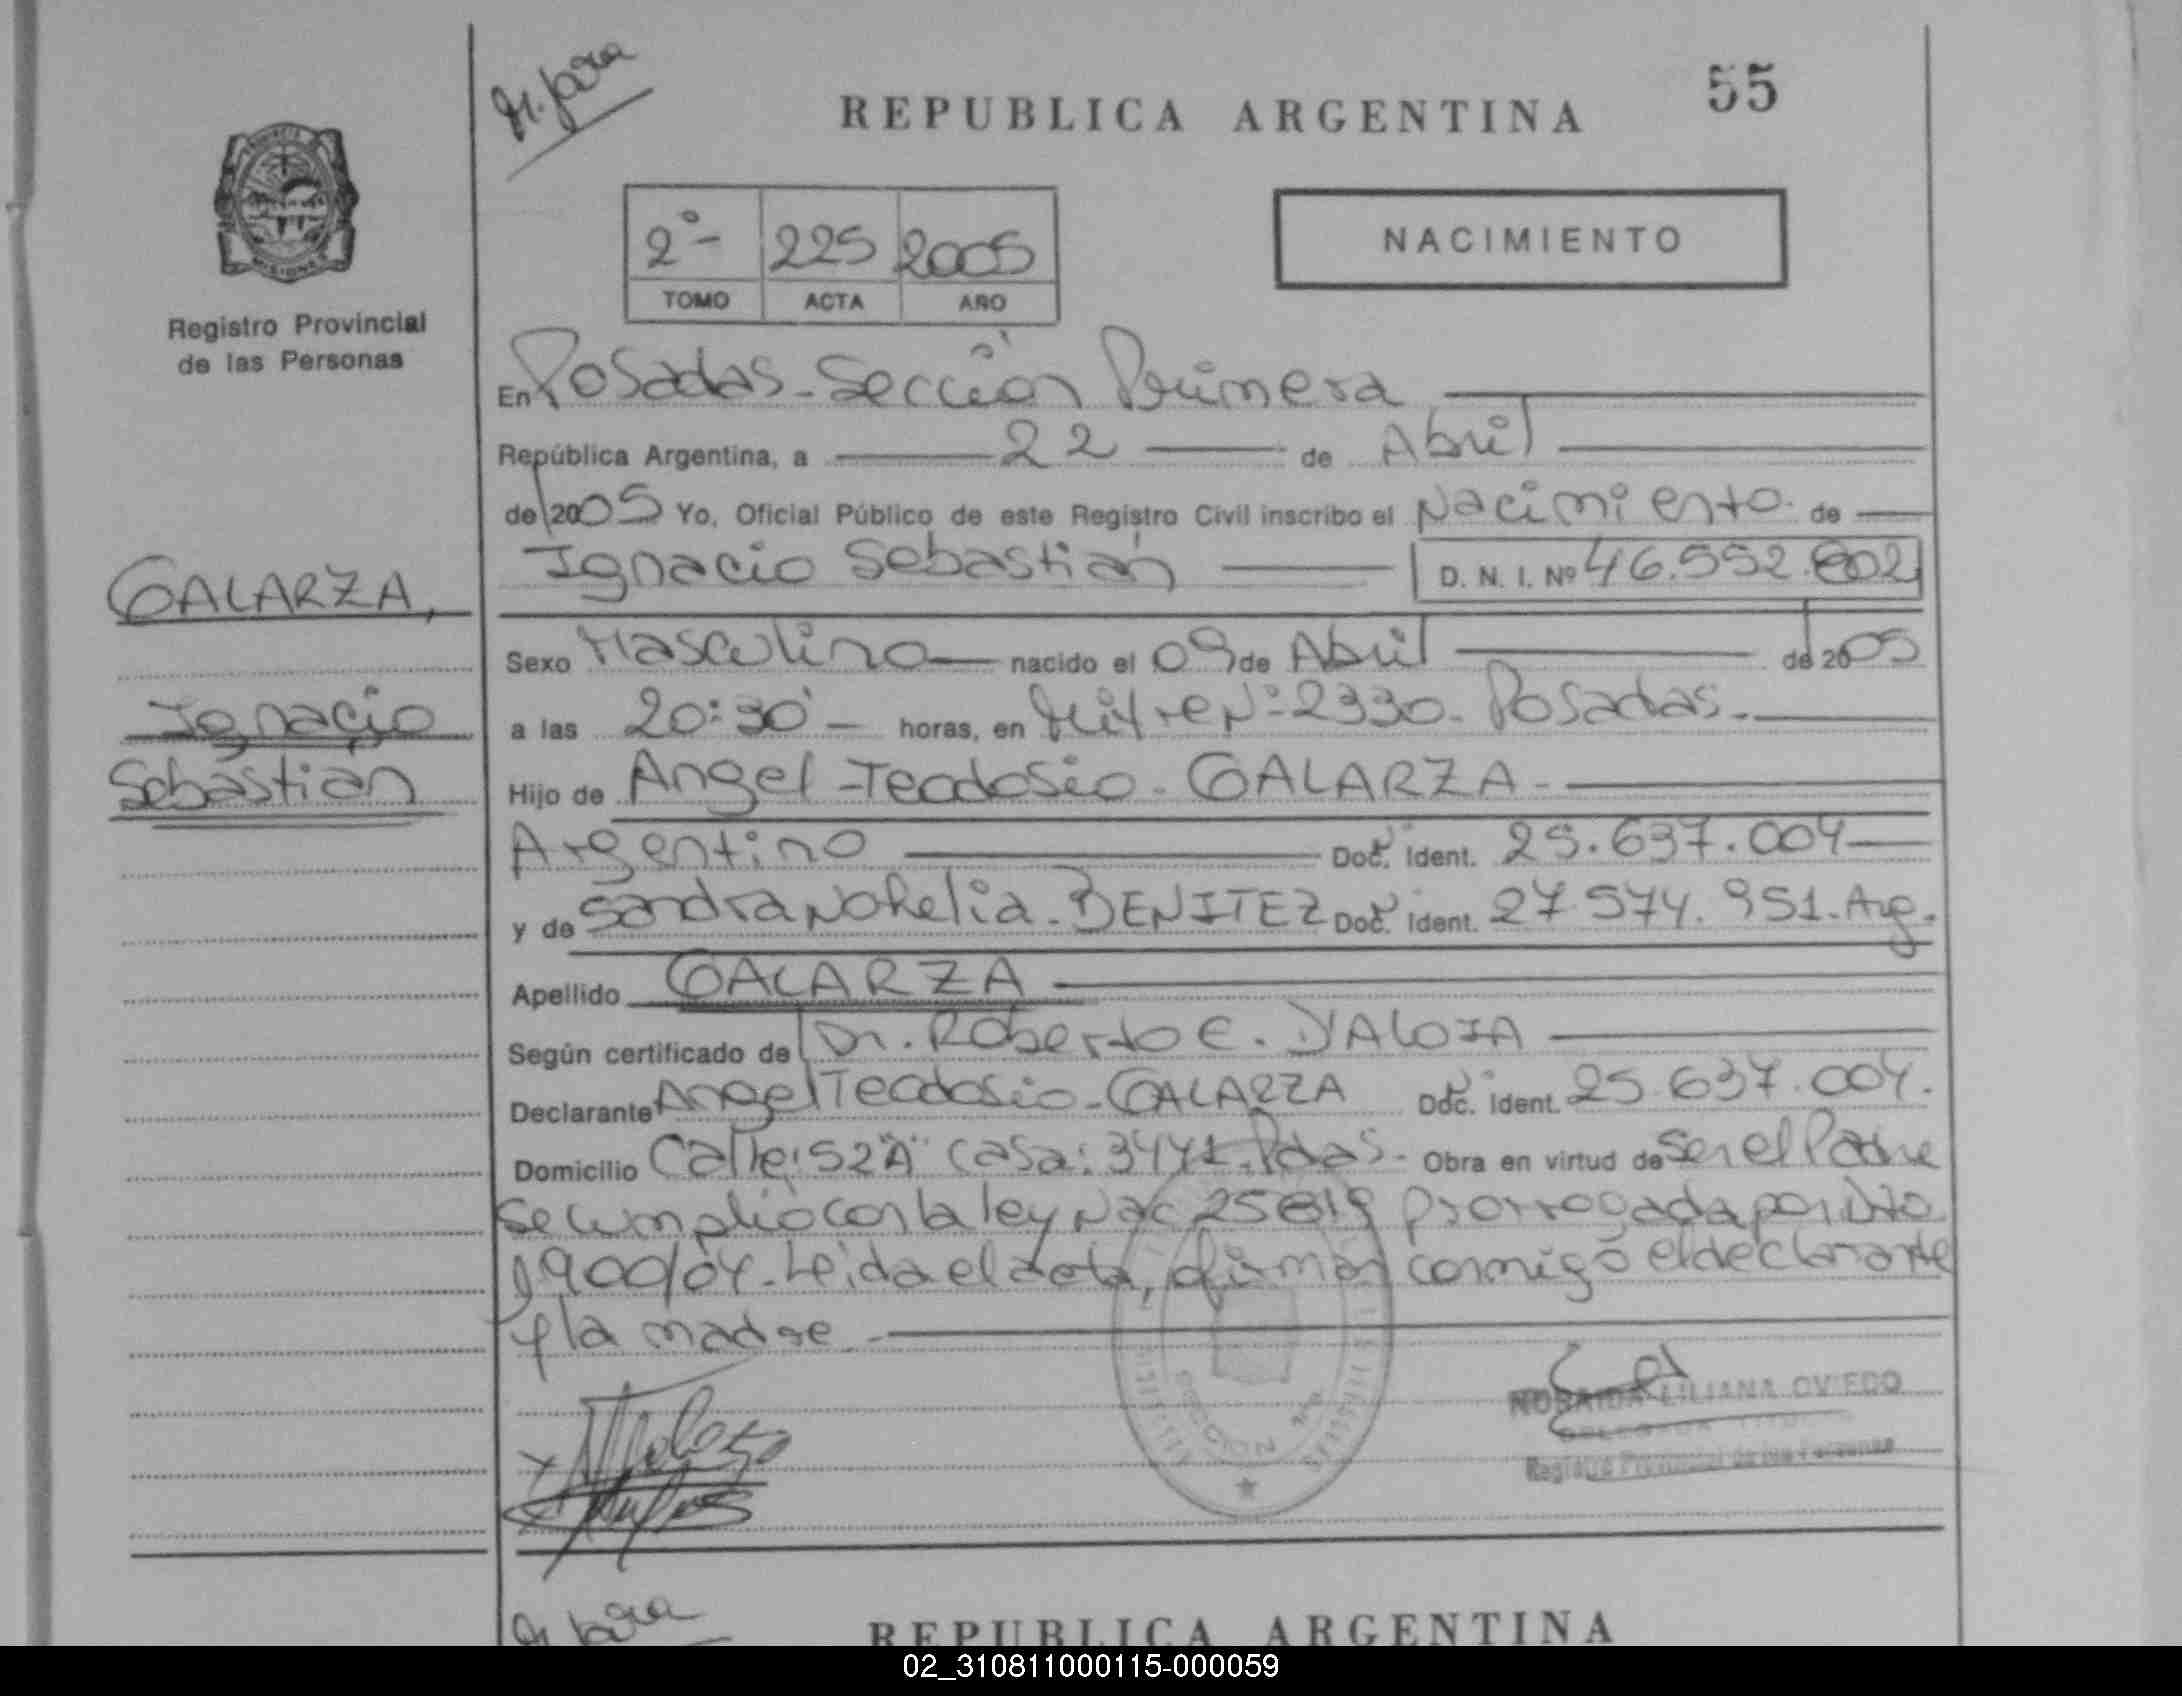 55
REPUBLICA ARGENTINA
NACIMIENTO
2º- 225 2005
TOMO ACTA AÑO
MISIONES
Registro Provincial
de las Personas
En Posadas - Sección Primera
República Argentina, a 22 de Abril
de 2005 Yo, Oficial Público de este Registro Civil inscribo el Nacimiento de
Ignacio Sebastián D. N. I. Nº 46.552.802
GALARZA,
Ignacio
Sebastián
Sexo Masculino nacido el 09 de Abril de 2005
a las 20:30 horas, en Mitre Nº 2330 - Posadas.
Hijo de Angel Teodosio - GALARZA -
Argentino Doc. Ident. 25.637.004
y de Sandra Nohelia - BENITEZ Doc. Ident. 27.574.951. Arg.
Apellido GALARZA
Según certificado de Dr. Roberto E. D'ALOIA
Declarante Angel Teodosio - GALARZA Doc. Ident. 25.637.004.
Domicilio Calle: 52 "A" Casa: 3441 - Pdas - Obra en virtud de ser el Padre
Se cumplió con la ley Nac 25819 prorrogada por Dto
1900/04. Leida el acta, firman conmigo el declarante
y la madre.
LILIANA OVIEDO
Registro Provincial de las Personas
SECCION
REPUBLICA ARGENTINA
02_310811000115-000059